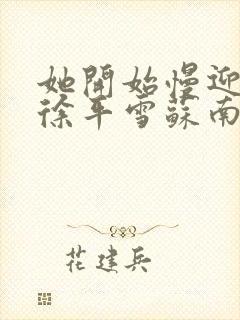 她開始慢迎
徐平雪蘇南
花建兵